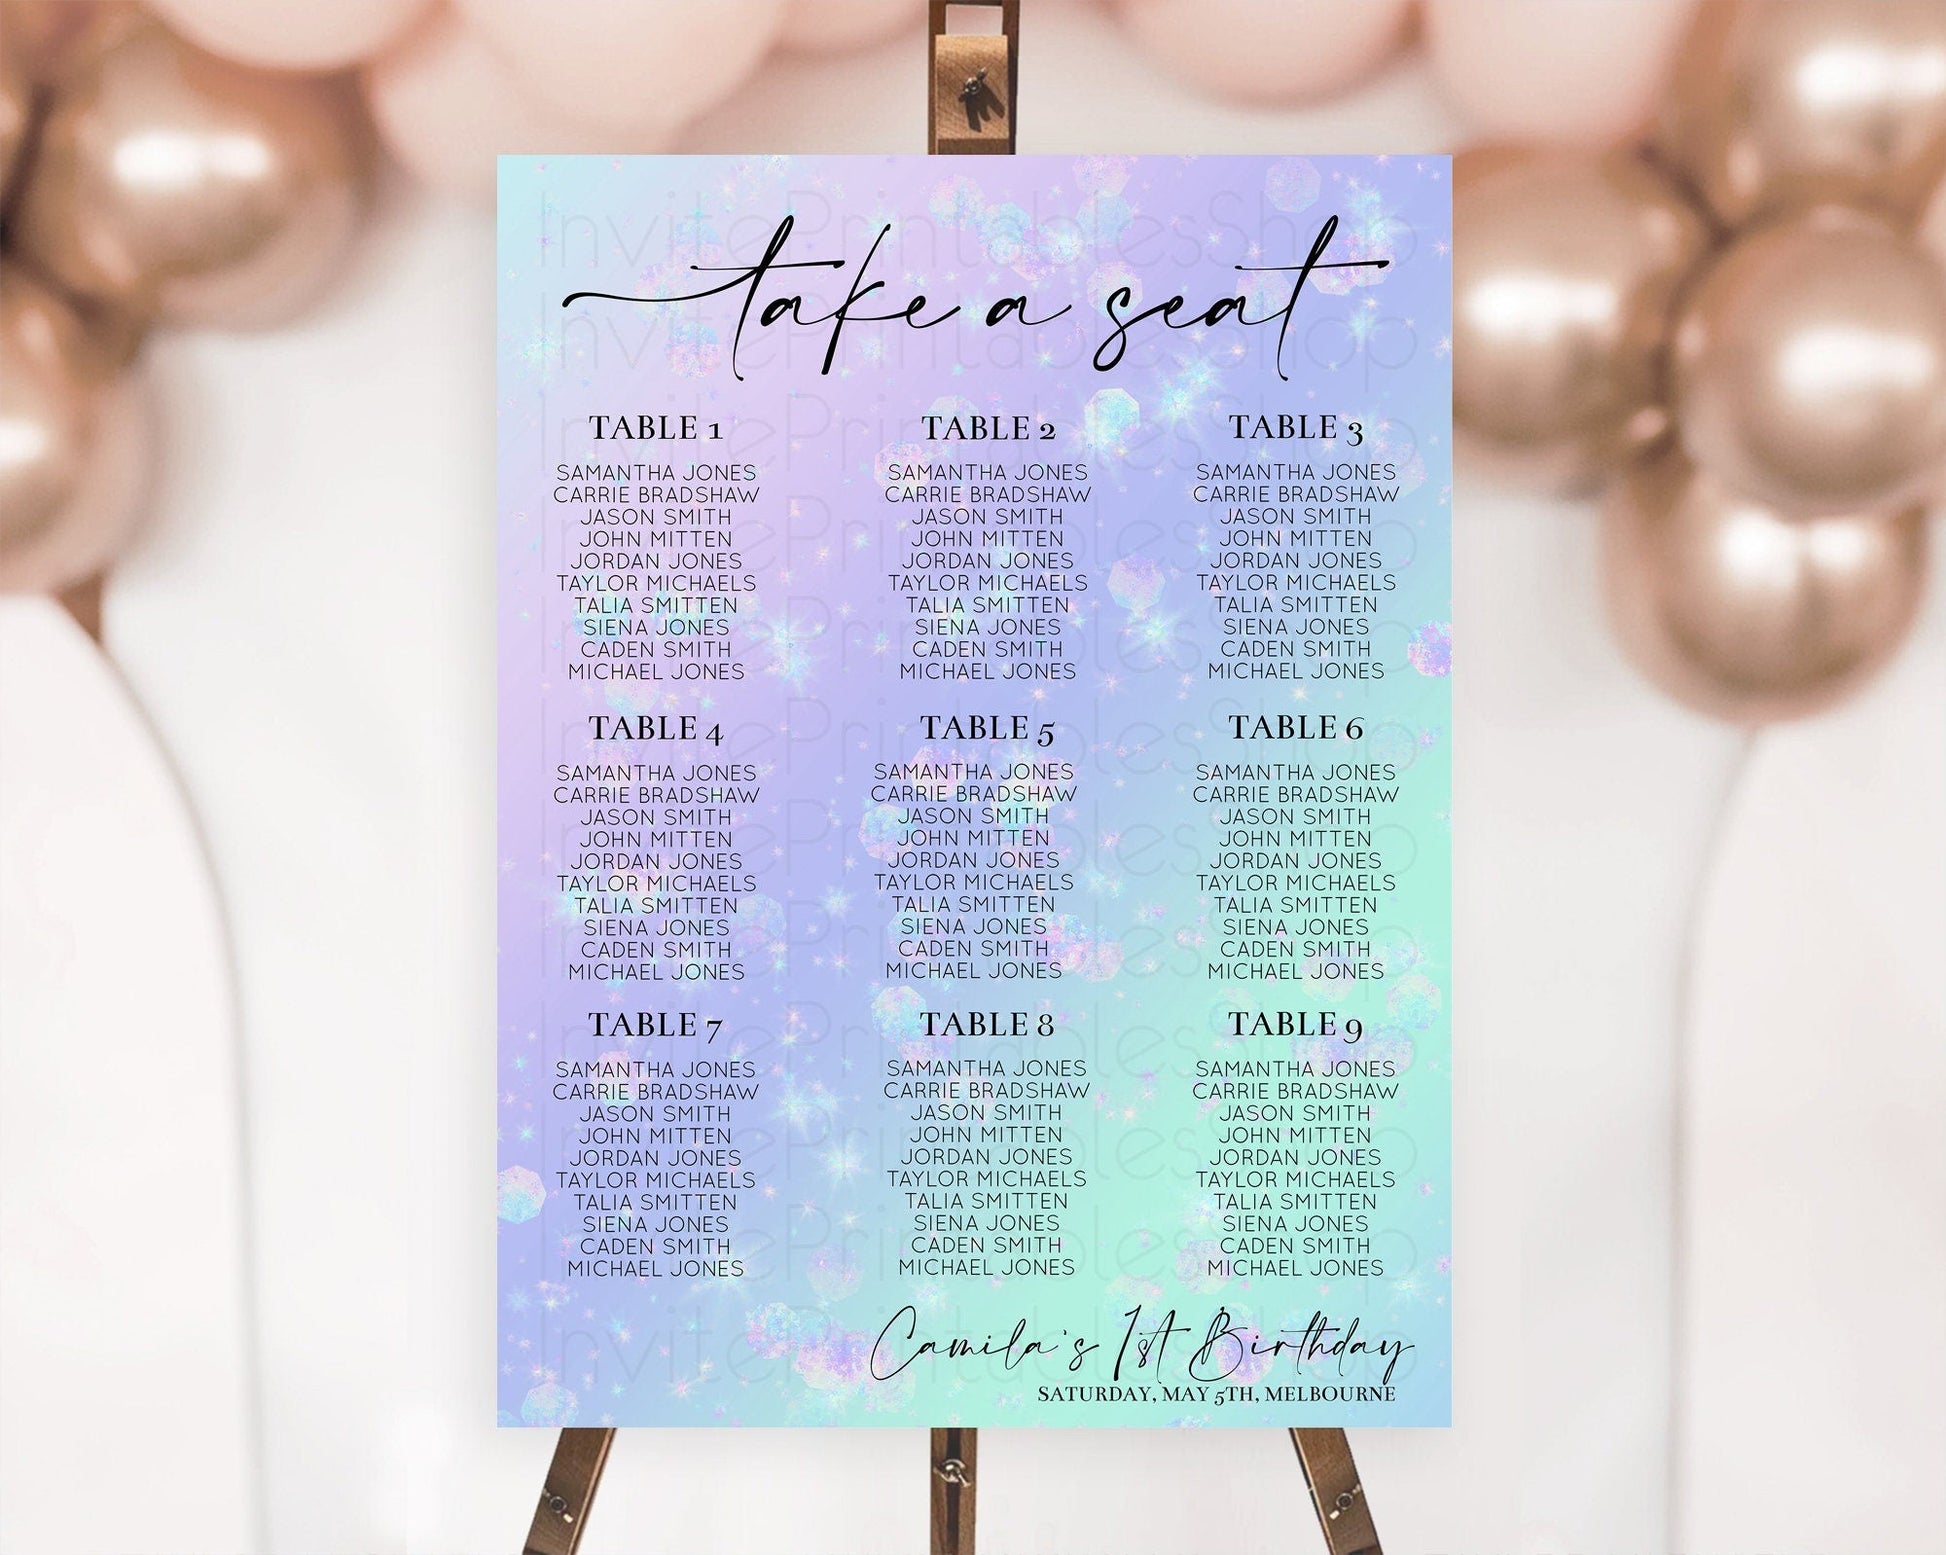 take a seat
TABLE 1
SAMANTHA JONES
CARRIE BRADSHAW
JASON SMITH
JOHN MITTEN
JORDAN JONES
TAYLOR MICHAELS
TALIA SMITTEN
SIENA JONES
CADEN SMITH
MICHAEL JONES
TABLE 2
SAMANTHA JONES
CARRIE BRADSHAW
JASON SMITH
JOHN MITTEN
JORDAN JONES
TAYLOR MICHAELS
TALIA SMITTEN
SIENA JONES
CADEN SMITH
MICHAEL JONES
TABLE 3
SAMANTHA JONES
CARRIE BRADSHAW
JASON SMITH
JOHN MITTEN
JORDAN JONES
TAYLOR MICHAELS
TALIA SMITTEN
SIENA JONES
CADEN SMITH
MICHAEL JONES
TABLE 4
SAMANTHA JONES
CARRIE BRADSHAW
JASON SMITH
JOHN MITTEN
JORDAN JONES
TAYLOR MICHAELS
TALIA SMITTEN
SIENA JONES
CADEN SMITH
MICHAEL JONES
TABLE 5
SAMANTHA JONES
CARRIE BRADSHAW
JASON SMITH
JOHN MITTEN
JORDAN JONES
TAYLOR MICHAELS
TALIA SMITTEN
SIENA JONES
CADEN SMITH
MICHAEL JONES
TABLE 6
SAMANTHA JONES
CARRIE BRADSHAW
JASON SMITH
JOHN MITTEN
JORDAN JONES
TAYLOR MICHAELS
TALIA SMITTEN
SIENA JONES
CADEN SMITH
MICHAEL JONES
TABLE 7
SAMANTHA JONES
CARRIE BRADSHAW
JASON SMITH
JOHN MITTEN
JORDAN JONES
TAYLOR MICHAELS
TALIA SMITTEN
SIENA JONES
CADEN SMITH
MICHAEL JONES
TABLE 8
SAMANTHA JONES
CARRIE BRADSHAW
JASON SMITH
JOHN MITTEN
JORDAN JONES
TAYLOR MICHAELS
TALIA SMITTEN
SIENA JONES
CADEN SMITH
MICHAEL JONES
TABLE 9
SAMANTHA JONES
CARRIE BRADSHAW
JASON SMITH
JOHN MITTEN
JORDAN JONES
TAYLOR MICHAELS
TALIA SMITTEN
SIENA JONES
CADEN SMITH
MICHAEL JONES
Camila's 1st Birthday
SATURDAY, MAY 5TH, MELBOURNE
InvitePrintablesShop
InvitePrintablesShop
InvitePrintablesShop
InvitePrintablesShop
InvitePrintablesShop
InvitePrintablesShop
InvitePrintablesShop
InvitePrintablesShop
InvitePrintablesShop
InvitePrintablesShop
InvitePrintablesShop
InvitePrintablesShop